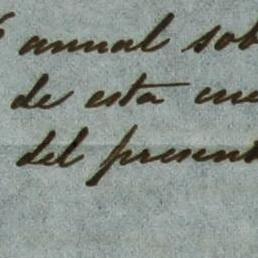 annual sob
de esta cue
del present